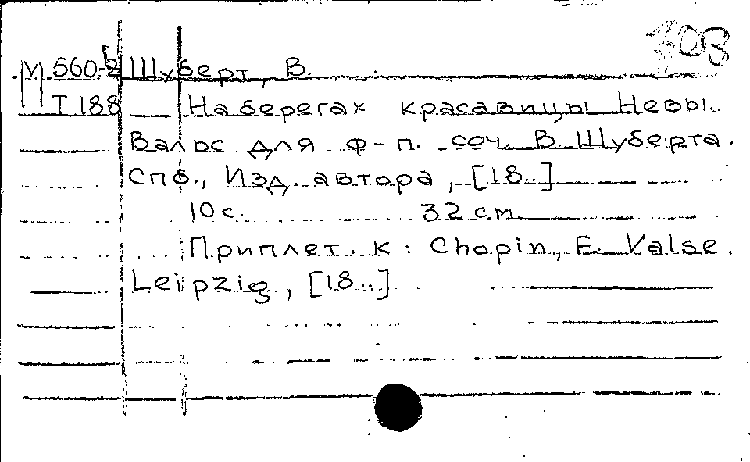 708
М 560-2 Шуберт, В.
Т 188 На берегах красавицы Невы.
Вальс для ф-п. соч. В. Шуберта.
Спб., Изд. автора, [18..]
10 с. 32 см.
Приплет. к: Chopin, F. Valse.
Leipzig, [18..]